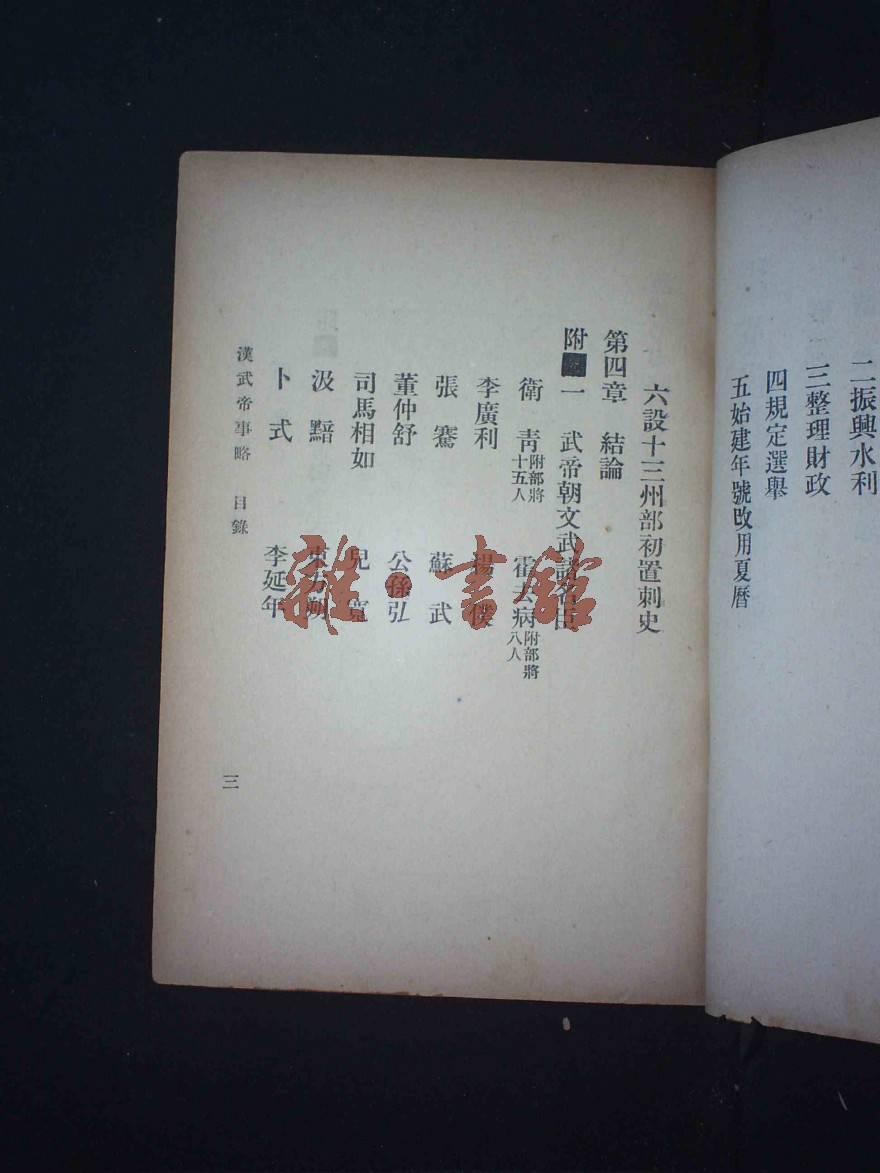 二振興水利
三整理財政
四規定選舉
五始建年號改用夏曆
六設十三州部初置刺史
第四章　結論
附　一　武帝朝文武諸名臣
衞　青附部將十五人　霍去病附部將八人
李廣利　楊　僕
張　騫　蘇　武
董仲舒　公孫弘
司馬相如　兒　寬
汲　黯　東方朔
卜　式　李延年
漢武帝事略　目錄
三
雜·書館